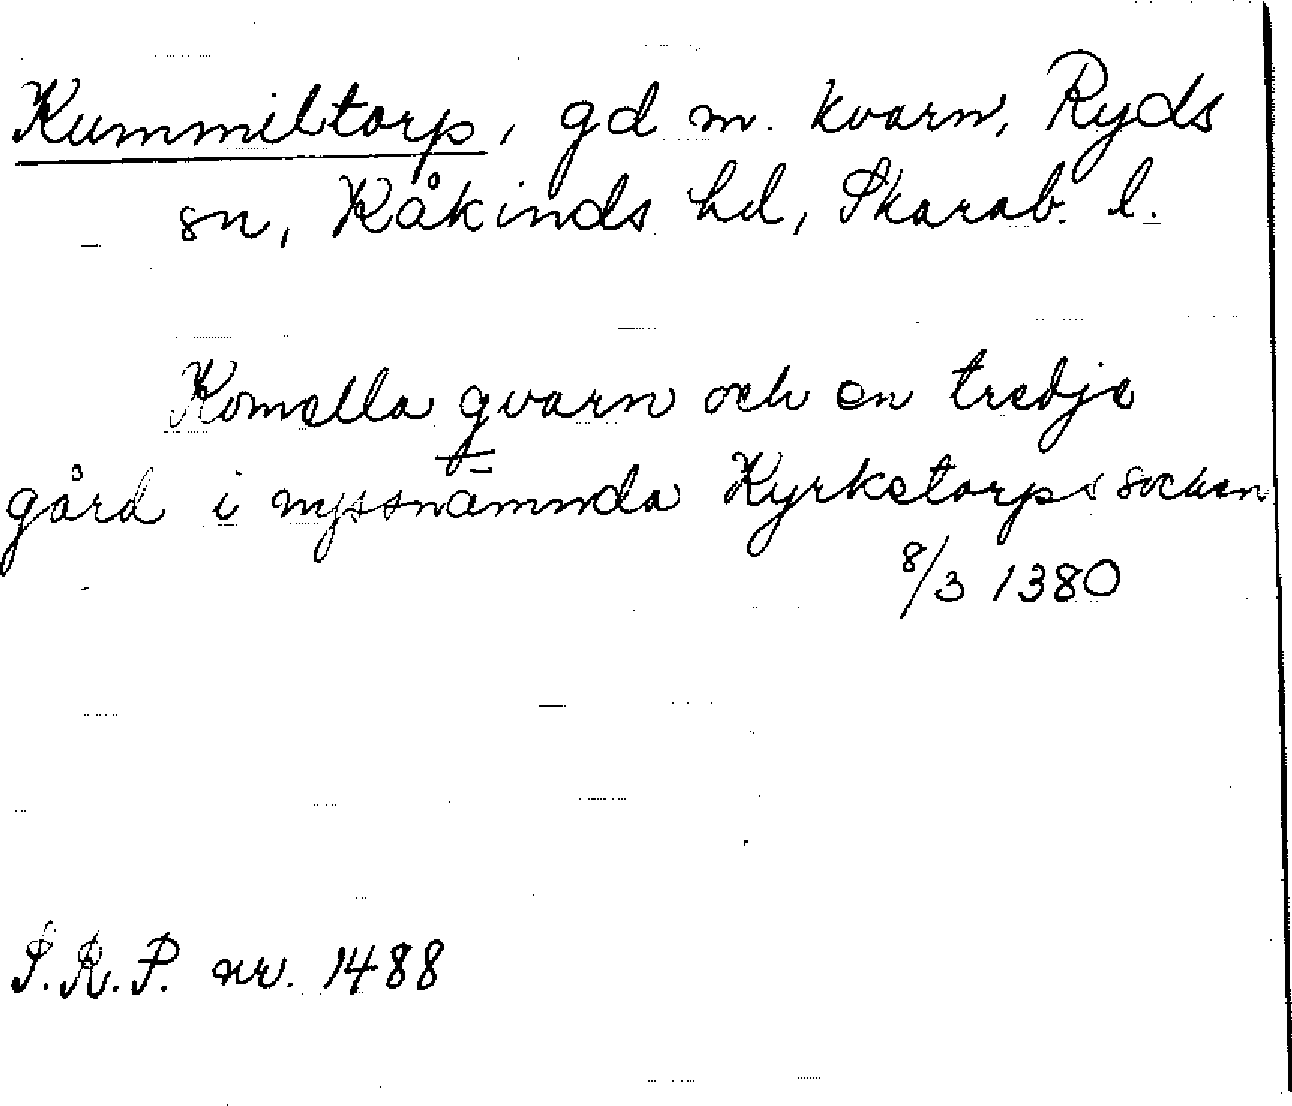 Kummeltorp, gd m. kvarn, Ryds
sn, Kåkinds hd, Skarab. l.
Komella qvarn och en tredje
gård i nyssnämnda Kyrketorps socken
8/3 1380
S.R.P. nr. 1488